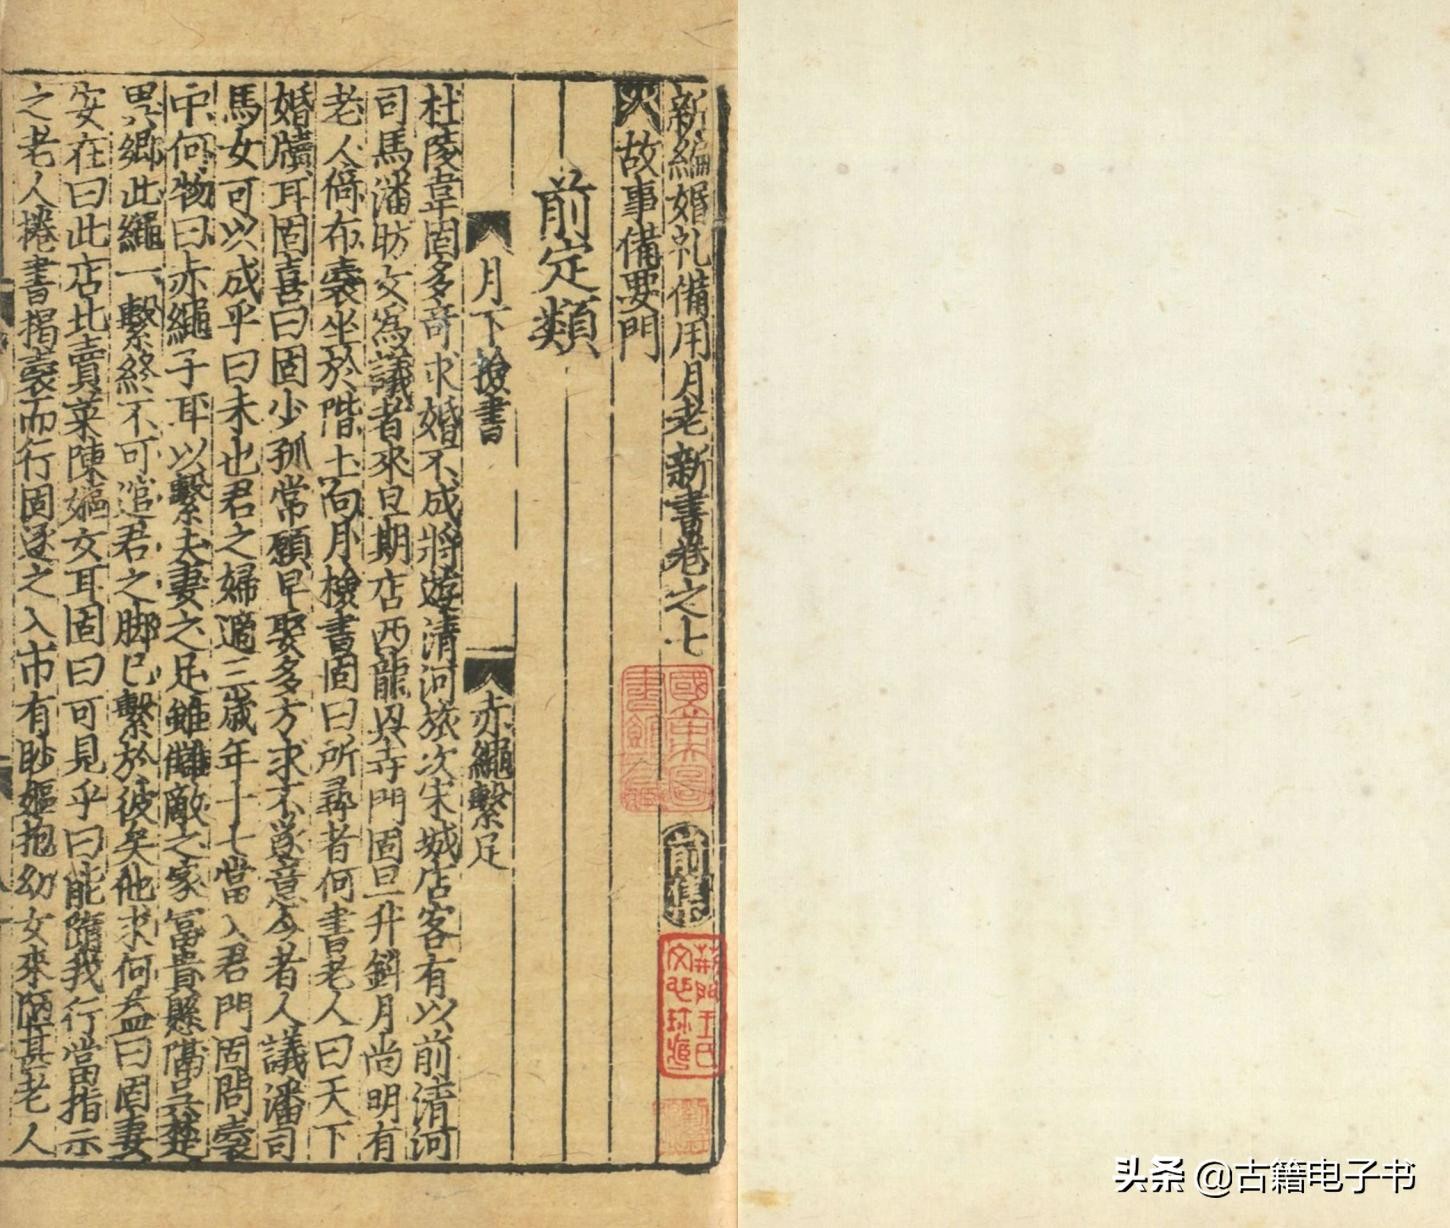 新編婚礼備用月老新書卷之七
前集
故事備要門
前定類
月下撿書
赤繩繫足
杜陵韋固多奇求婚不成將遊清河旅次宋城店客有以前清河
司馬潘昉女為議者來旦期店西龍興寺門固旦升斜月尚明有
老人倚布囊坐於階上向月檢書固曰所尋者何書老人曰天下
婚牘耳固喜曰固少孤常願早娶多方求不遂意今者人議潘司
馬女可以成乎曰未也君之婦適三歲年十七當入君門固問囊
中何物曰赤繩子耳以繫夫妻之足雖讎敵之家富貴懸隔吳楚
異鄉此繩一繫終不可逭君之脚已繫於彼矣他求何益曰固妻
安在曰此店北賣菜陳嫗女耳固曰可見乎曰能隨我行當指示
之老人捲書揭囊而行固逐之入市有眇嫗抱幼女來陋甚老人
荊門王氏
頭条 @古籍电子书